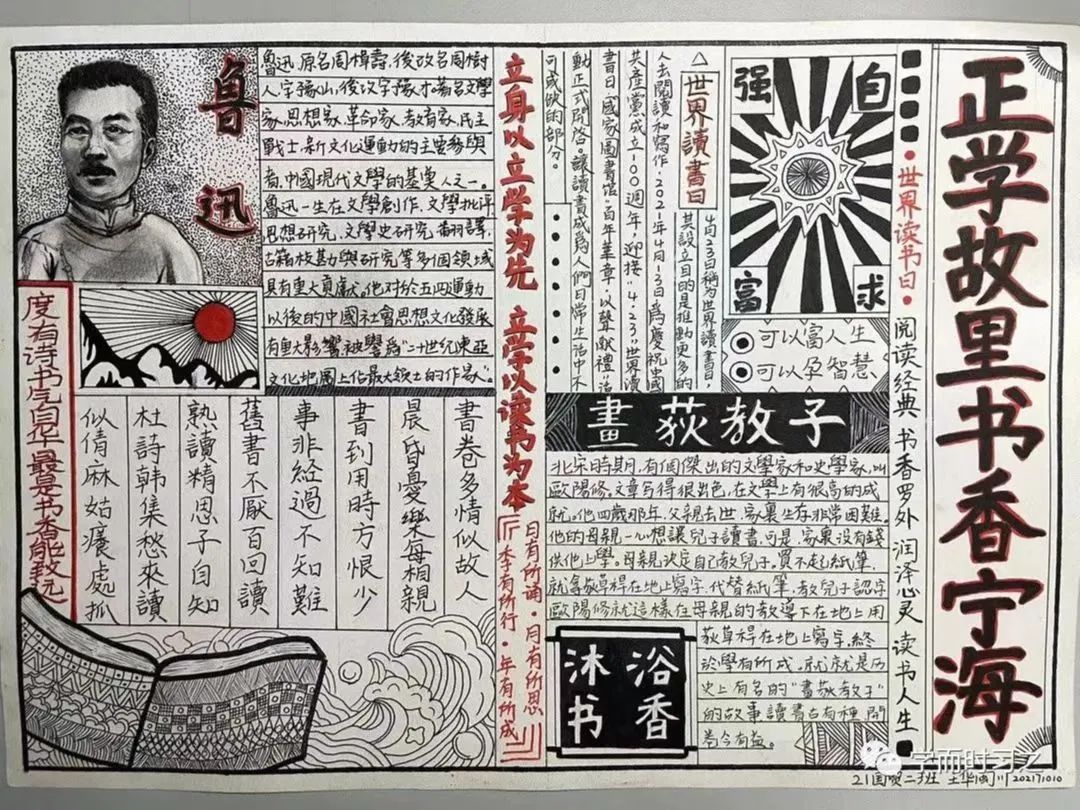 正学故里书香宁海
•世界读书日•阅读经典 书香罗外 润泽心灵 读书人生
自
强
求
富
可以富人生
可以孕智慧
世界讀書日
4月23日稱为世界讀書日，
其設立目的是推動更多的
人去閱讀和寫作·2021年4月13日爲慶祝中國
共產黨成立100週年，迎接"4.23"世界讀
書日，國家圖書館"百年華章，以聲献禮"活
動正式開啓。讓讀書成爲人們日常生活中不
可或缺的部分。
畫荻教子
北宋時期，有個傑出的文學家和史學家，叫
歐陽修。文章写得很出色，在文學上有很高的成
就。他四歲那年，父親去世，家裏生存非常困難。
他的母親一心想讓兒子讀書，可是，家裏没有錢
供他上學。母親決定自己教兒子，買不起紙筆，
就拿荻草稈在地上寫字，代替紙筆，教兒子認字
歐陽修就這樣在母親的教導下在地上用
荻草稈在地上寫字，終
於學有所成，就是历
史上有名的"畫荻教子"
的故事讀書古有種，開
卷今有益。
沐浴
书香
立身以立学为先 立学以读书为本
日有所诵·月有所思
季有所行·年有所成
魯迅
魯迅，原名周樟壽，後改名周樹
人，字豫山，後改字豫才，著名文學
家、思想家、革命家、教育家、民主
戰士，新文化運動的主要參與
者，中國現代文學的基奠人之一。
魯迅一生在文學創作、文學批評
思想研究、文學史研究、翻譯、
古籍校勘與研究等多個領域
具有重大貢獻。他對於五四運動
以後的中國社會思想文化發展
有重大影響，被譽爲"二十世紀東亞
文化地圖上佔最大領土的作家"。
書卷多情似故人
晨昏憂樂每相親
書到用時方恨少
事非經過不知難
舊書不厭百回讀
熟讀精思子自知
杜詩韓集愁來讀
似倩麻姑癢處抓
度有诗书气自华 最是书香能致远
学而时习之
20211010